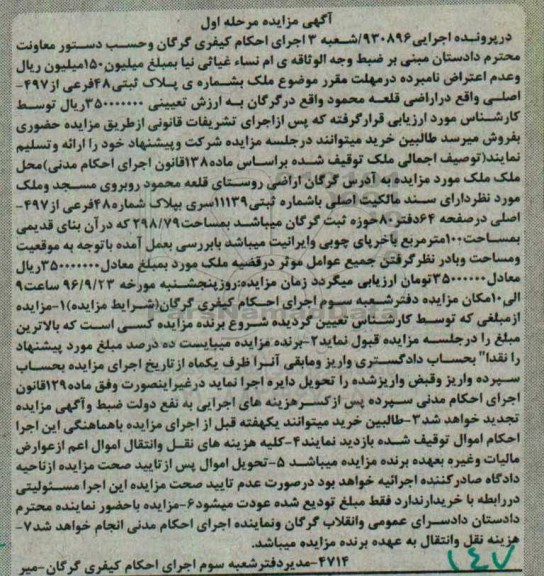 آگهی مزایده مرحله اول
درپرونده اجرایی۹۳۰۸۹۶/شعبه ۳ اجرای احکام کیفری گرگان وحسب دستور معاونت
محترم دادستان مبنی بر ضبط وجه الوثاقه ی ام نساء غیاثی نیا بمبلغ میلیون۱۵۰میلیون ریال
وعدم اعتراض نامبرده درمهلت مقرر موضوع ملک بشماره ی پلاک ثبتی۴۸فرعی از۴۹۷-
اصلی واقع دراراضی قلعه محمود واقع درگرگان به ارزش تعیینی ۳۵۰۰۰۰۰۰۰ریال توسط
کارشناس مورد ارزیابی قرارگرفته که پس ازاجرای تشریفات قانونی ازطریق مزایده حضوری
بفروش میرسد طالبین خرید میتوانند درجلسه مزایده شرکت وپیشنهاد خود را ارائه وتسلیم
نمایند(توصیف اجمالی ملک توقیف شده براساس ماده۱۳۸قانون اجرای احکام مدنی)محل
ملک ملک مورد مزایده به آدرس گرگان اراضی روستای قلعه محمود روبروی مسجد وملک
مورد نظردارای سند مالکیت اصلی باشماره ثبتی۱۱۱۳۹سری بپلاک شماره۴۸فرعی از۴۹۷-
اصلی درصفحه ۶۴دفتر۸۰حوزه ثبت گرگان میباشد بمساحت۲۹۸/۷۹ که درآن بنای قدیمی
بمساحت۱۰۰مترمربع باخرپای چوبی وایرانیت میباشد بابررسی بعمل آمده باتوجه به موقعیت
ومساحت وبادر نظرگرفتن جمیع عوامل موثر درقضیه ملک مورد بمبلغ معادل۳۵۰۰۰۰۰۰۰ریال
معادل۳۵۰۰۰۰۰۰تومان ارزیابی میگردد زمان مزایده:روزپنجشنبه مورخه ۹۶/۹/۲۳ ساعت۹
الی۱۰مکان مزایده دفترشعبه سوم اجرای احکام کیفری گرگان(شرایط مزایده)۱-مزایده
ازمبلغی که توسط کارشناس تعیین گردیده شروع برنده مزایده کسی است که بالاترین
مبلغ را درجلسه مزایده قبول نماید۲-برنده مزایده میبایست ده درصد مبلغ مورد پیشنهاد
را نقدا" بحساب دادگستری واریز ومابقی آنرا ظرف یکماه ازتاریخ اجرای مزایده بحساب
سپرده واریز وقبض واریزشده را تحویل دایره اجرا نماید درغیراینصورت وفق ماده۱۲۹قانون
اجرای احکام مدنی سپرده پس ازکسرهزینه های اجرایی به نفع دولت ضبط وآگهی مزایده
تجدید خواهد شد۳-طالبین خرید میتوانند یکهفته قبل از اجرای مزایده باهماهنگی این اجرا
احکام اموال توقیف شده بازدید نمایند۴-کلیه هزینه های نقل وانتقال اموال اعم ازعوارض
مالیات وغیره بعهده برنده مزایده میباشد ۵-تحویل اموال پس ازتایید صحت مزایده ازناحیه
دادگاه صادرکننده اجرائیه خواهد بود درصورت عدم تایید صحت مزایده این اجرا مسئولیتی
دررابطه با خریدارندارد فقط مبلغ تودیع شده عودت میشود۶-مزایده باحضور نماینده محترم
دادستان دادسرای عمومی وانقلاب گرگان ونماینده اجرای احکام مدنی انجام خواهد شد۷-
هزینه نقل وانتقال به عهده برنده مزایده میباشد.
۴۷۱۴-مدیردفترشعبه سوم اجرای احکام کیفری گرگان-میر
۱۴۷